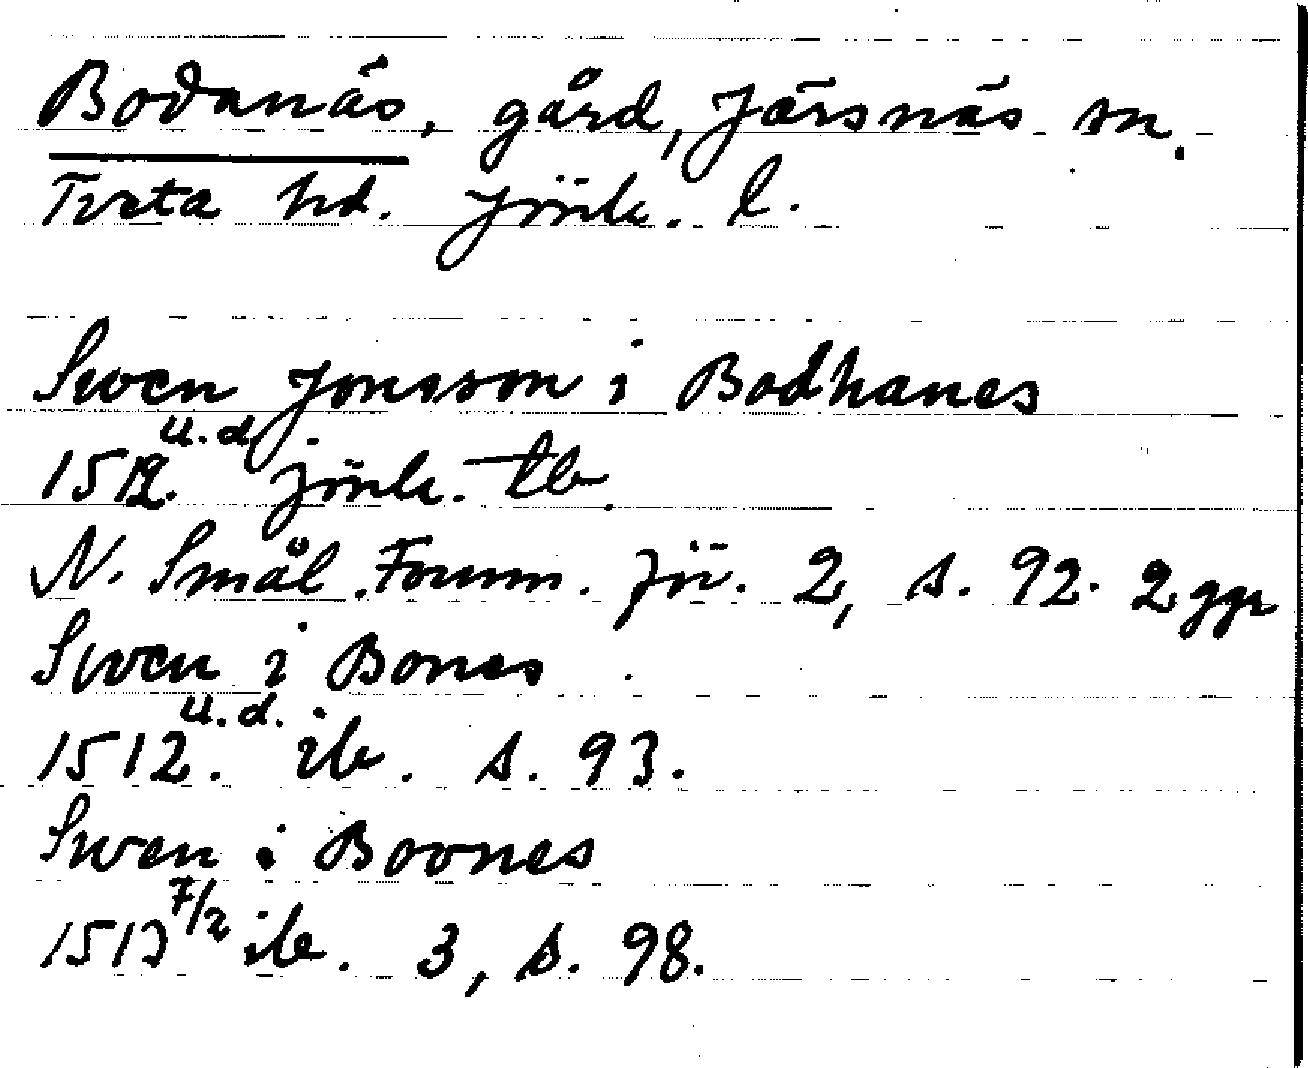 Bodanäs, gård, Järsnäs sn.
Tveta hd. Jönk. l.
Swen Jonsson i Bodhanes
1512 u.d. Jönk. tb.
N. Smål. Fornm. för. 2, s. 92. 2 ggr
Swen i Bones
1512 u.d. ib. s. 93.
Swen i Boones
1513 7/2 ib. 3, s. 98.